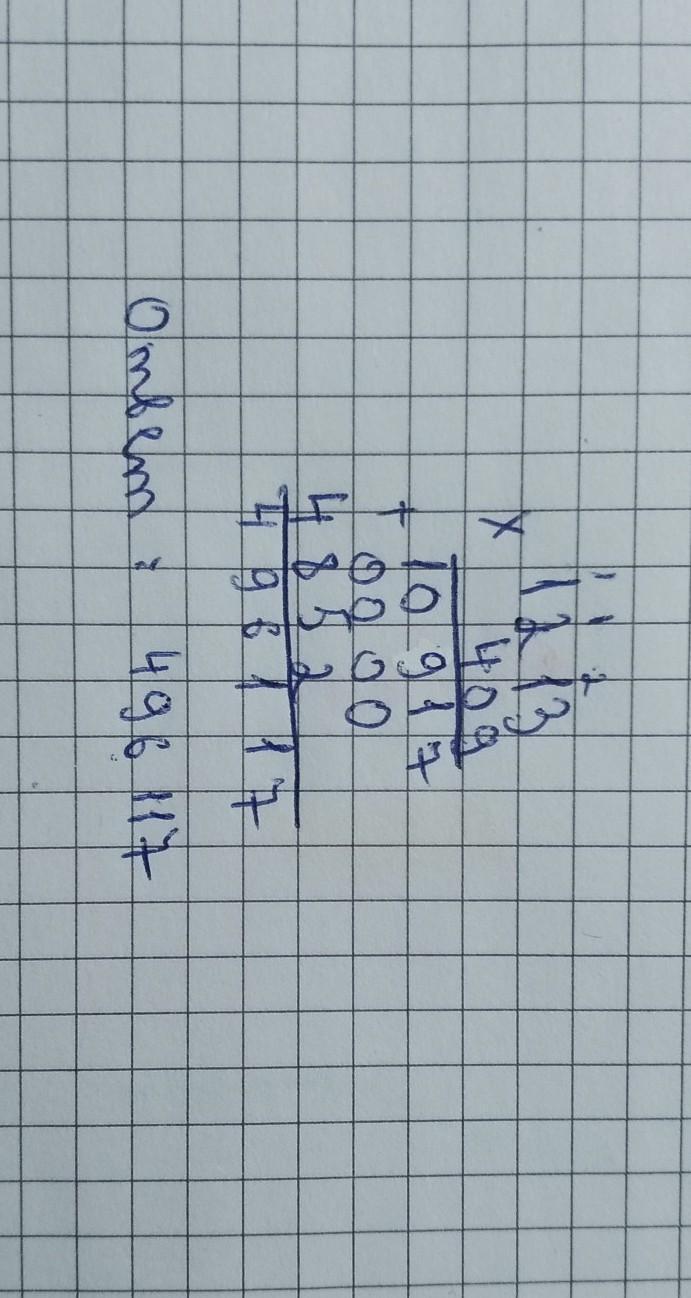 1 1 2
1213
×
409
10917
+
0000
4852
496117
Ответ: 496 117